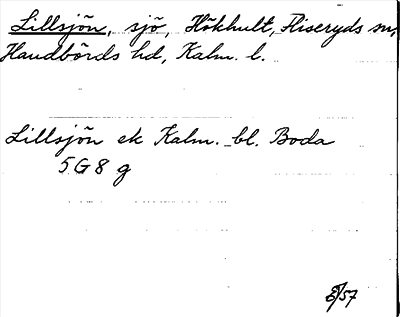 Lillsjön, sjö, Hökhult, Hiseryds sn,
Handbörds hd, Kalm. l.
Lillsjön ek Kalm. bl. Boda
5 G 8 g
/57